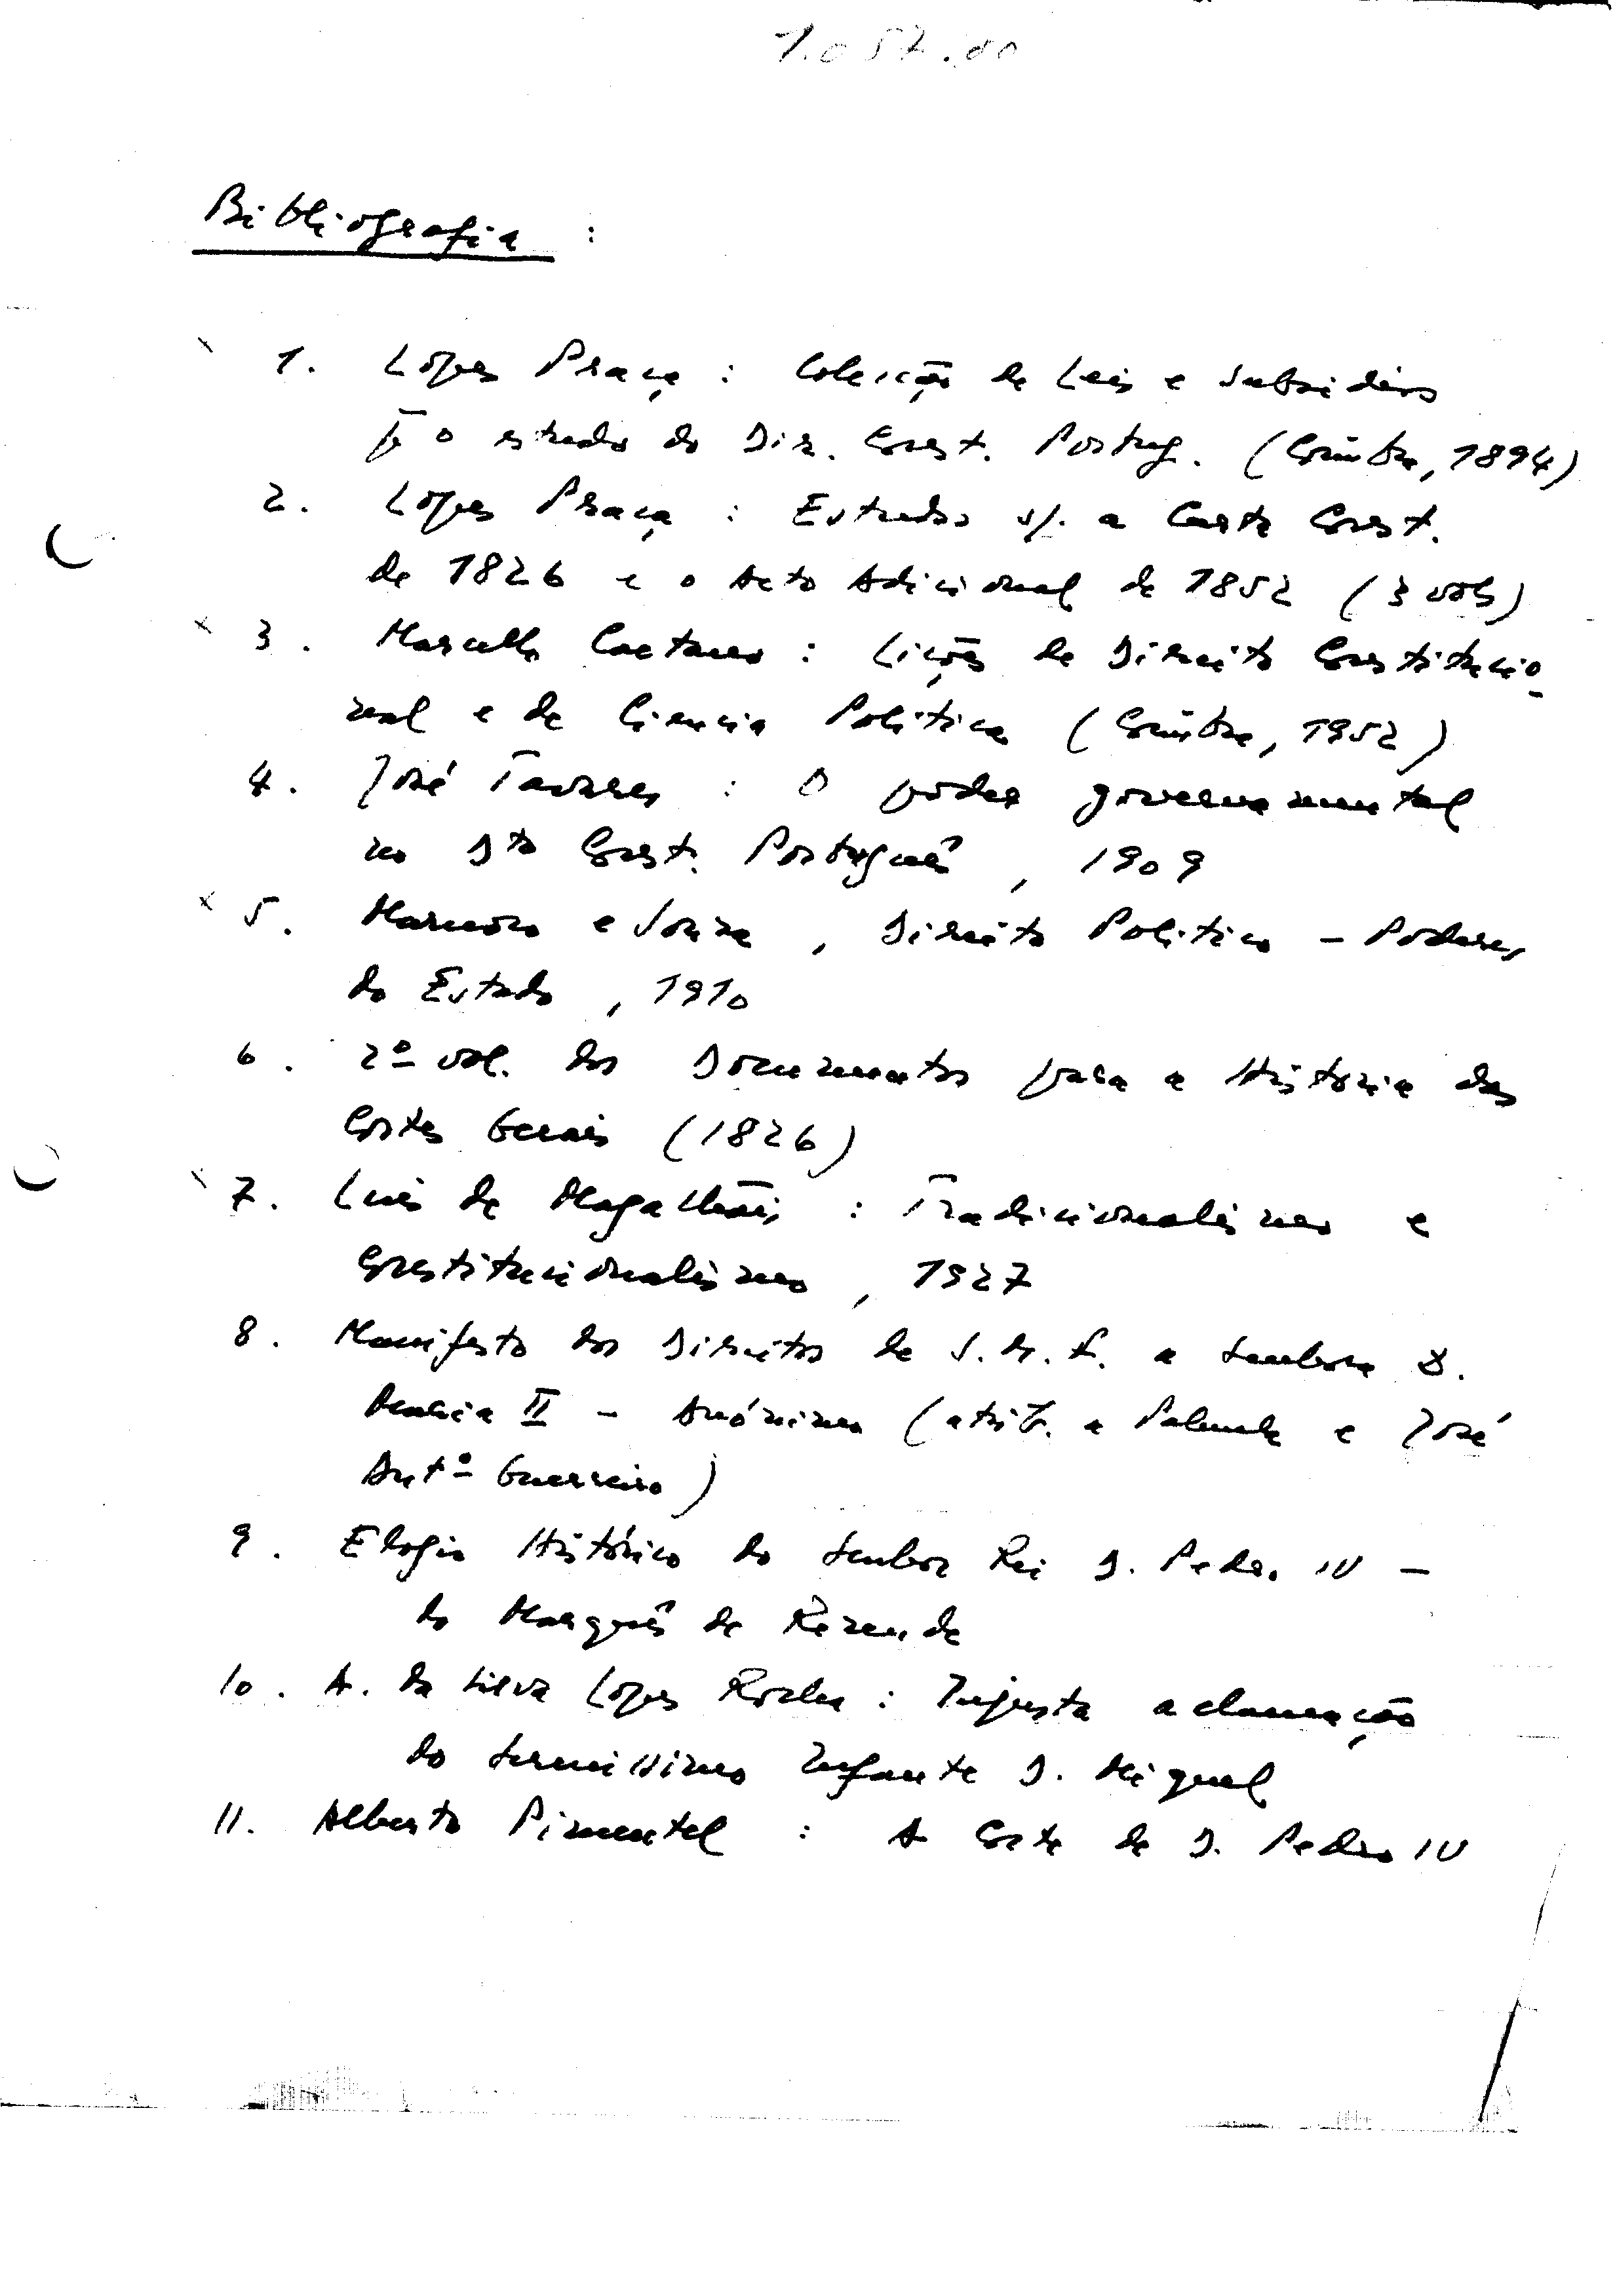 1.057.00
Bibliografia :
1. Lopes Praça : Colecção de Leis e Subsidios
p̄ o estudo do Dir. Const. Portug. (Coimbra, 1894)
2. Lopes Praça : Estudos s/. a Carta Const.
de 1826 e o Acto Adicional de 1852 (3 vols)
x 3. Marcello Caetano : Lições de Direito Constitucio-
nal e de Ciencia Politica (Coimbra, 1952)
4. José Tavares : O poder governamental
no Dto Const. Português, 1909
x 5. Marnoco e Souza, Direito Politico - Poderes
do Estado, 1910
6. 2º vol. dos Documentos para a Historia das
Cortes Gerais (1826)
7. Luis de Magalhães : Tradicionalismo e
Constitucionalismo, 1927
8. Manifesto dos Direitos de S.M.F. a Senhora D.
Maria II - Anónimo (atrib. a Palmela e José
Antº Guerreiro)
9. Elogio Histórico do Senhor Rei D. Pedro IV -
do Marquês de Rezende
10. A. da Silva Lopes Rocha : Injusta aclamação
do Serenissimo Infante D. Miguel
11. Alberto Pimentel : A Corte de D. Pedro IV